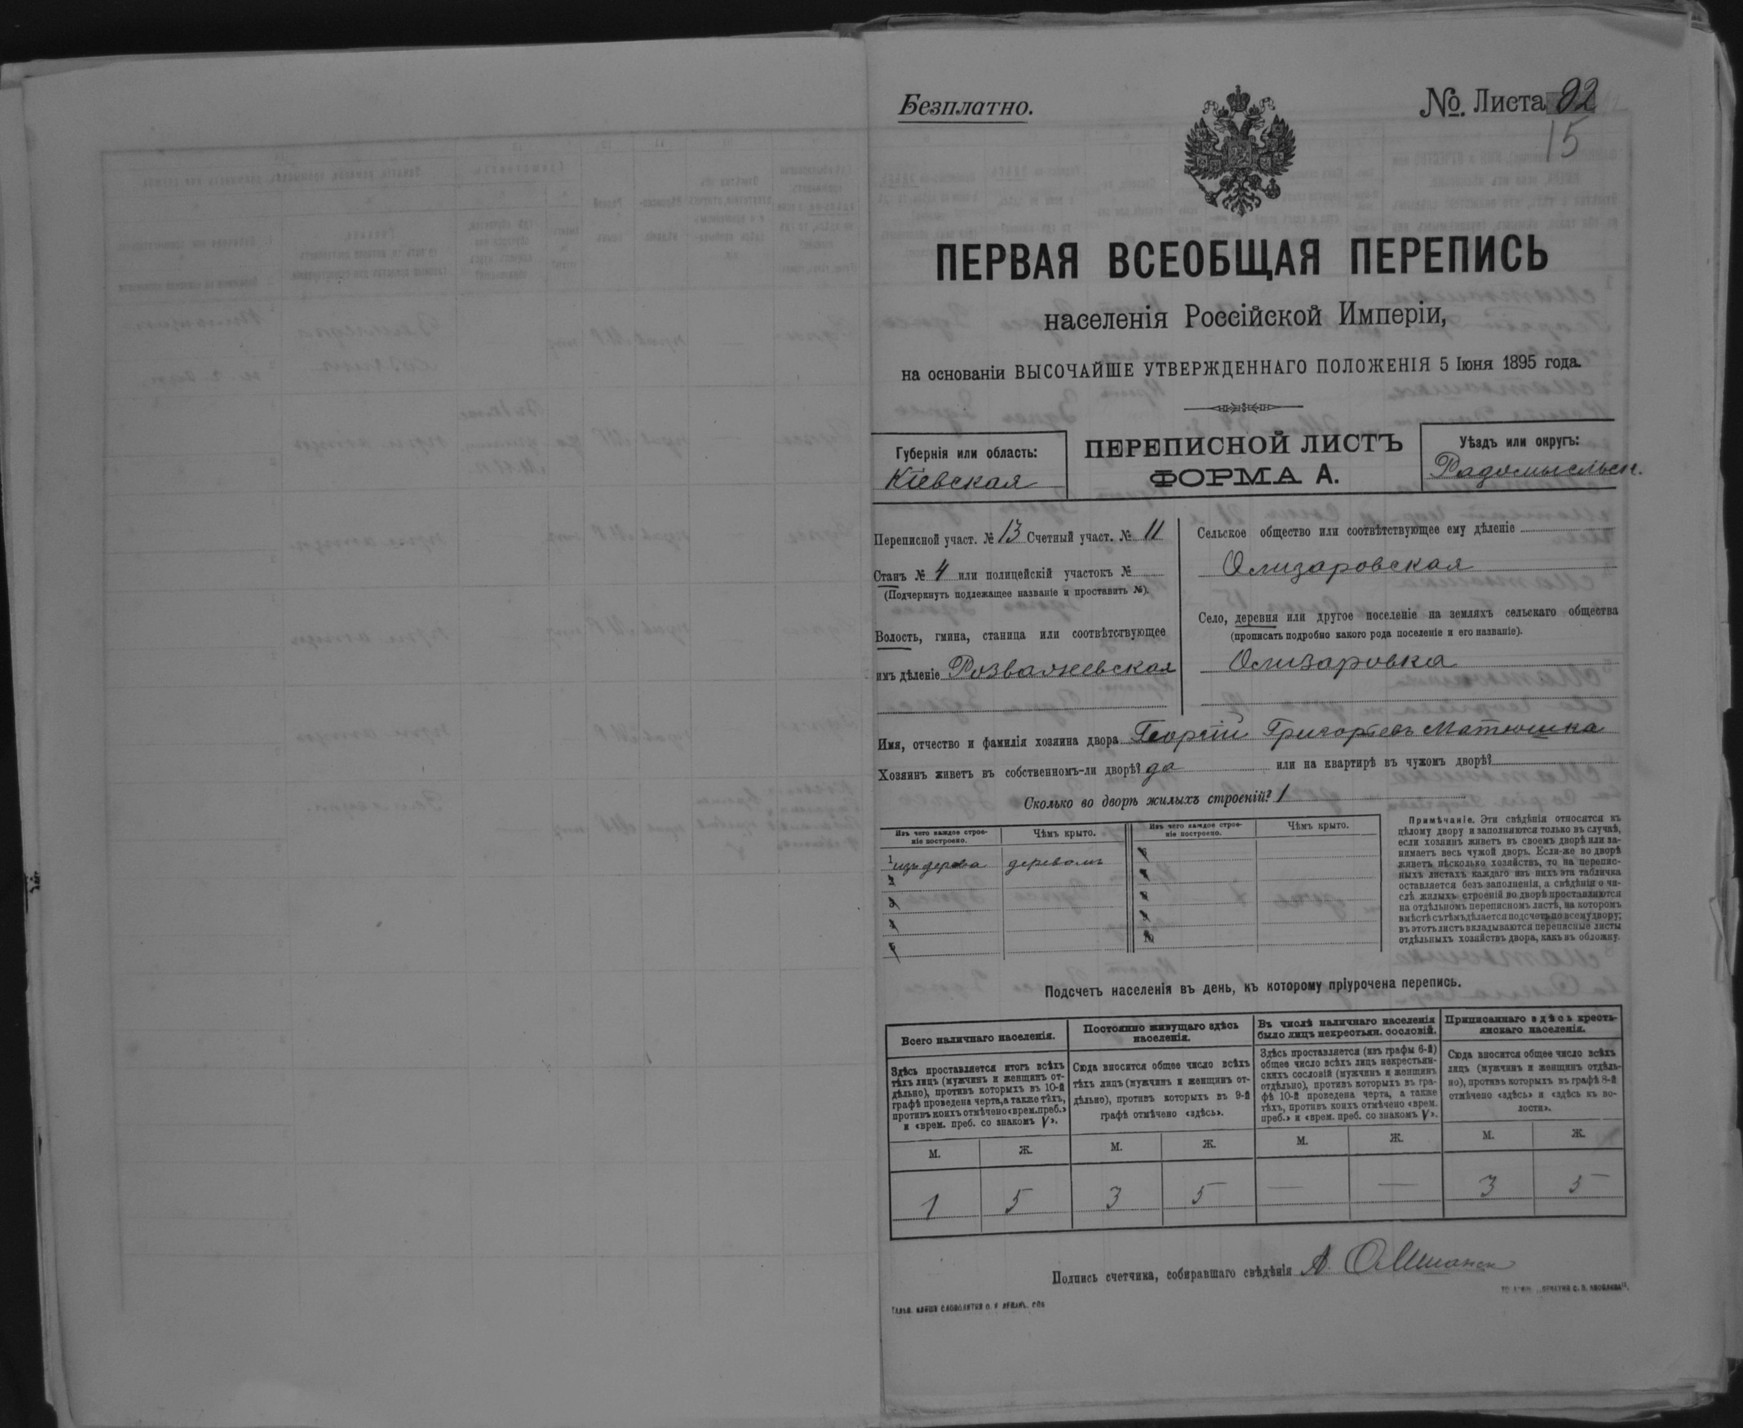 Безплатно.
№. Листа 92
15
ПЕРВАЯ ВСЕОБЩАЯ ПЕРЕПИСЬ
населенія Россійской Имперіи,
на основаніи ВЫСОЧАЙШЕ УТВЕРЖДЕННАГО ПОЛОЖЕНІЯ 5 Іюня 1895 года.
Губернія или область:
Кіевская
ПЕРЕПИСНОЙ ЛИСТЪ
ФОРМА А.
Уѣздъ или округъ:
Радомысльск.
Переписной участ. № 13 Счетный участ. № 11
Станъ № 4 или полицейскій участокъ №
(Подчеркнуть подлежащее названіе и проставить №).
Волость, гмина, станица или соотвѣтствующее
имъ дѣленіе Розважевская
Сельское общество или соотвѣтствующее ему дѣленіе
Олизаровская
Село, деревня или другое поселеніе на земляхъ сельскаго общества
(прописать подробно какого рода поселеніе и его названіе).
Олизаровка
Имя, отчество и фамилія хозяина двора Георгій Григорьевъ Матюшка
Хозяинъ живетъ въ собственномъ-ли дворѣ? да или на квартирѣ въ чужомъ дворѣ?
Сколько во дворѣ жилыхъ строеній? 1
Изъ чего каждое строе-
ніе построено.
Чѣмъ крыто.
Изъ чего каждое строе-
ніе построено.
Чѣмъ крыто.
1 изъ дерева деревомъ
2
3
4
5
Примѣчаніе. Эти свѣдѣнія относятся къ
цѣлому двору и заполняются только въ случаѣ,
если хозяинъ живетъ въ своемъ дворѣ или за-
нимаетъ весь чужой дворъ. Если-же во дворѣ
живетъ нѣсколько хозяйствъ, то на перепис-
ныхъ листахъ каждаго изъ нихъ эта табличка
оставляется безъ заполненія, а свѣдѣнія о чи-
слѣ жилыхъ строеній во дворѣ проставляются
на отдѣльномъ переписномъ листѣ, на которомъ
вмѣстѣ съ тѣмъ дѣлается подсчетъ по всему двору;
въ этотъ листъ вкладываются переписные листы
отдѣльныхъ хозяйствъ двора, какъ въ обложку.
Подсчетъ населенія въ день, къ которому пріурочена перепись.
Всего наличнаго населенія.
Здѣсь проставляется итогъ всѣхъ
тѣхъ лицъ (мужчинъ и женщинъ от-
дѣльно), противъ которыхъ въ 10-й
графѣ проведена черта, а также тѣхъ,
противъ коихъ отмѣчено «врем. преб.»
и «врем. преб. со знакомъ V».
Постоянно живущаго здѣсь
населенія.
Сюда вносится общее число всѣхъ
тѣхъ лицъ (мужчинъ и женщинъ от-
дѣльно), противъ которыхъ въ 9-й
графѣ отмѣчено «здѣсь».
Въ числѣ наличнаго населенія
было лицъ некрестьян. сословій.
Здѣсь проставляется (изъ графы 6-й)
общее число всѣхъ лицъ некрестьян-
скихъ сословій (мужчинъ и женщинъ
отдѣльно), противъ которыхъ въ гра-
фѣ 10-й проведена черта, а также
тѣхъ, противъ коихъ отмѣчено «врем.
преб.» и «врем. преб. со знакомъ V».
Приписаннаго здѣсь кресть-
янскаго населенія.
Сюда вносится общее число всѣхъ
лицъ (мужчинъ и женщинъ отдѣль-
но), противъ которыхъ въ графѣ 8-й
отмѣчено «здѣсь» и «здѣсь въ во-
лости».
М. Ж. М. Ж. М. Ж. М. Ж.
1 5 3 5 — — 3 5
Подпись счетчика, собиравшаго свѣдѣнія А.